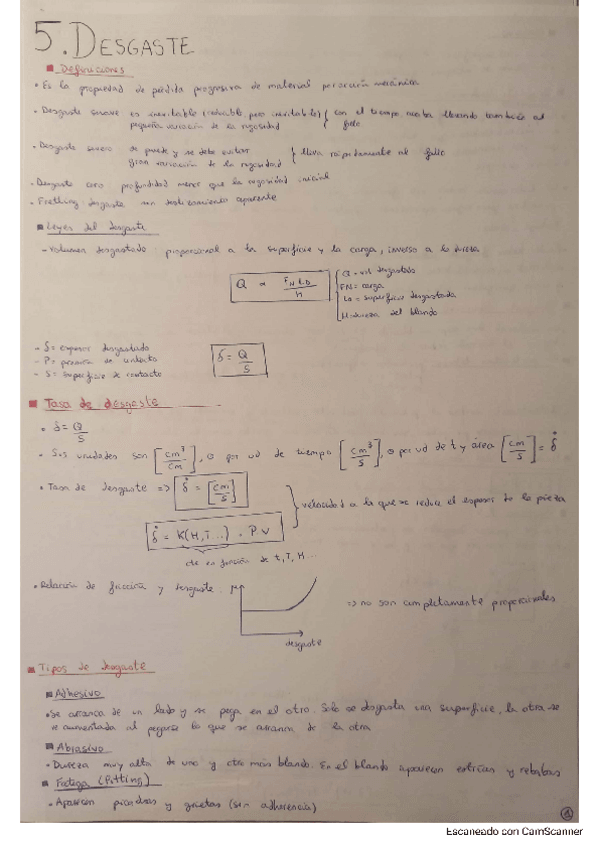 5. DESGASTE
Definiciones
• Es la propiedad de pérdida progresiva de material por acción mecánica
• Desgaste suave es inevitable (reducible, pero inevitable) { con el tiempo, acaba llevando también al
pequeña variación de la rugosidad fallo
• Desgaste severo se puede y se debe evitar } lleva rápidamente al fallo
gran variación de la rugosidad
• Desgaste cero profundidad menor que la rugosidad inicial
• Fretting: desgaste sin deslizamiento aparente
Leyes del desgaste
- Volumen desgastado: proporcional a la superficie y la carga, inverso a la dureza
Q ∝ F_N L_D / h
Q = vol desgastado
FN = carga
LD = superficie desgastada
H = dureza del blando
- δ = espesor desgastado
- P = presión de contacto
- S = superficie de contacto
δ = Q / S
Tasa de desgaste
• δ = Q / S
• Sus unidades son [cm³ / cm], o por ud de tiempo [cm³ / s], o por ud de t y área [cm / s] = δ̇
• Tasa de desgaste => δ̇ = [cm / s]
} velocidad a la que se reduce el espesor de la pieza
δ̇ = K(H,T...) · P v
cte en función de t, T, H...
• Relación de fricción y desgaste: μ
=> no son completamente proporcionales
desgaste
Tipos de desgaste
Adhesivo
• Se arranca de un lado y se pega en el otro. Solo se desgasta una superficie, la otra se
ve aumentada al pegarse lo que se arranca de la otra
Abrasivo
• Dureza muy alta de uno y otro más blando. En el blando aparecen estrías y rebabas
Fatiga (Pitting)
• Aparecen picaduras y grietas (sin adherencia)
1
Escaneado con CamScanner